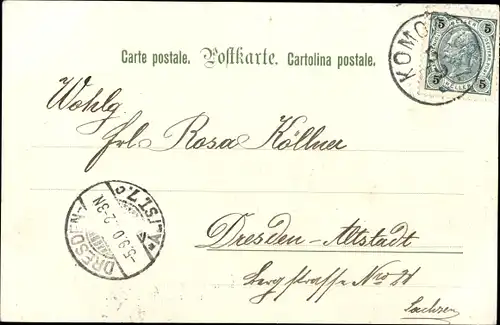 Carte postale. Postkarte. Cartolina postale.
KOMO
5 5
5 HELLER 5
Wohlg
Frl. Rosa Köllner
DRESDEN-ALTST. 7. c
5.9.0 2-3N
Dresden-Altstadt
Bergstrasse Nro
Sachsen